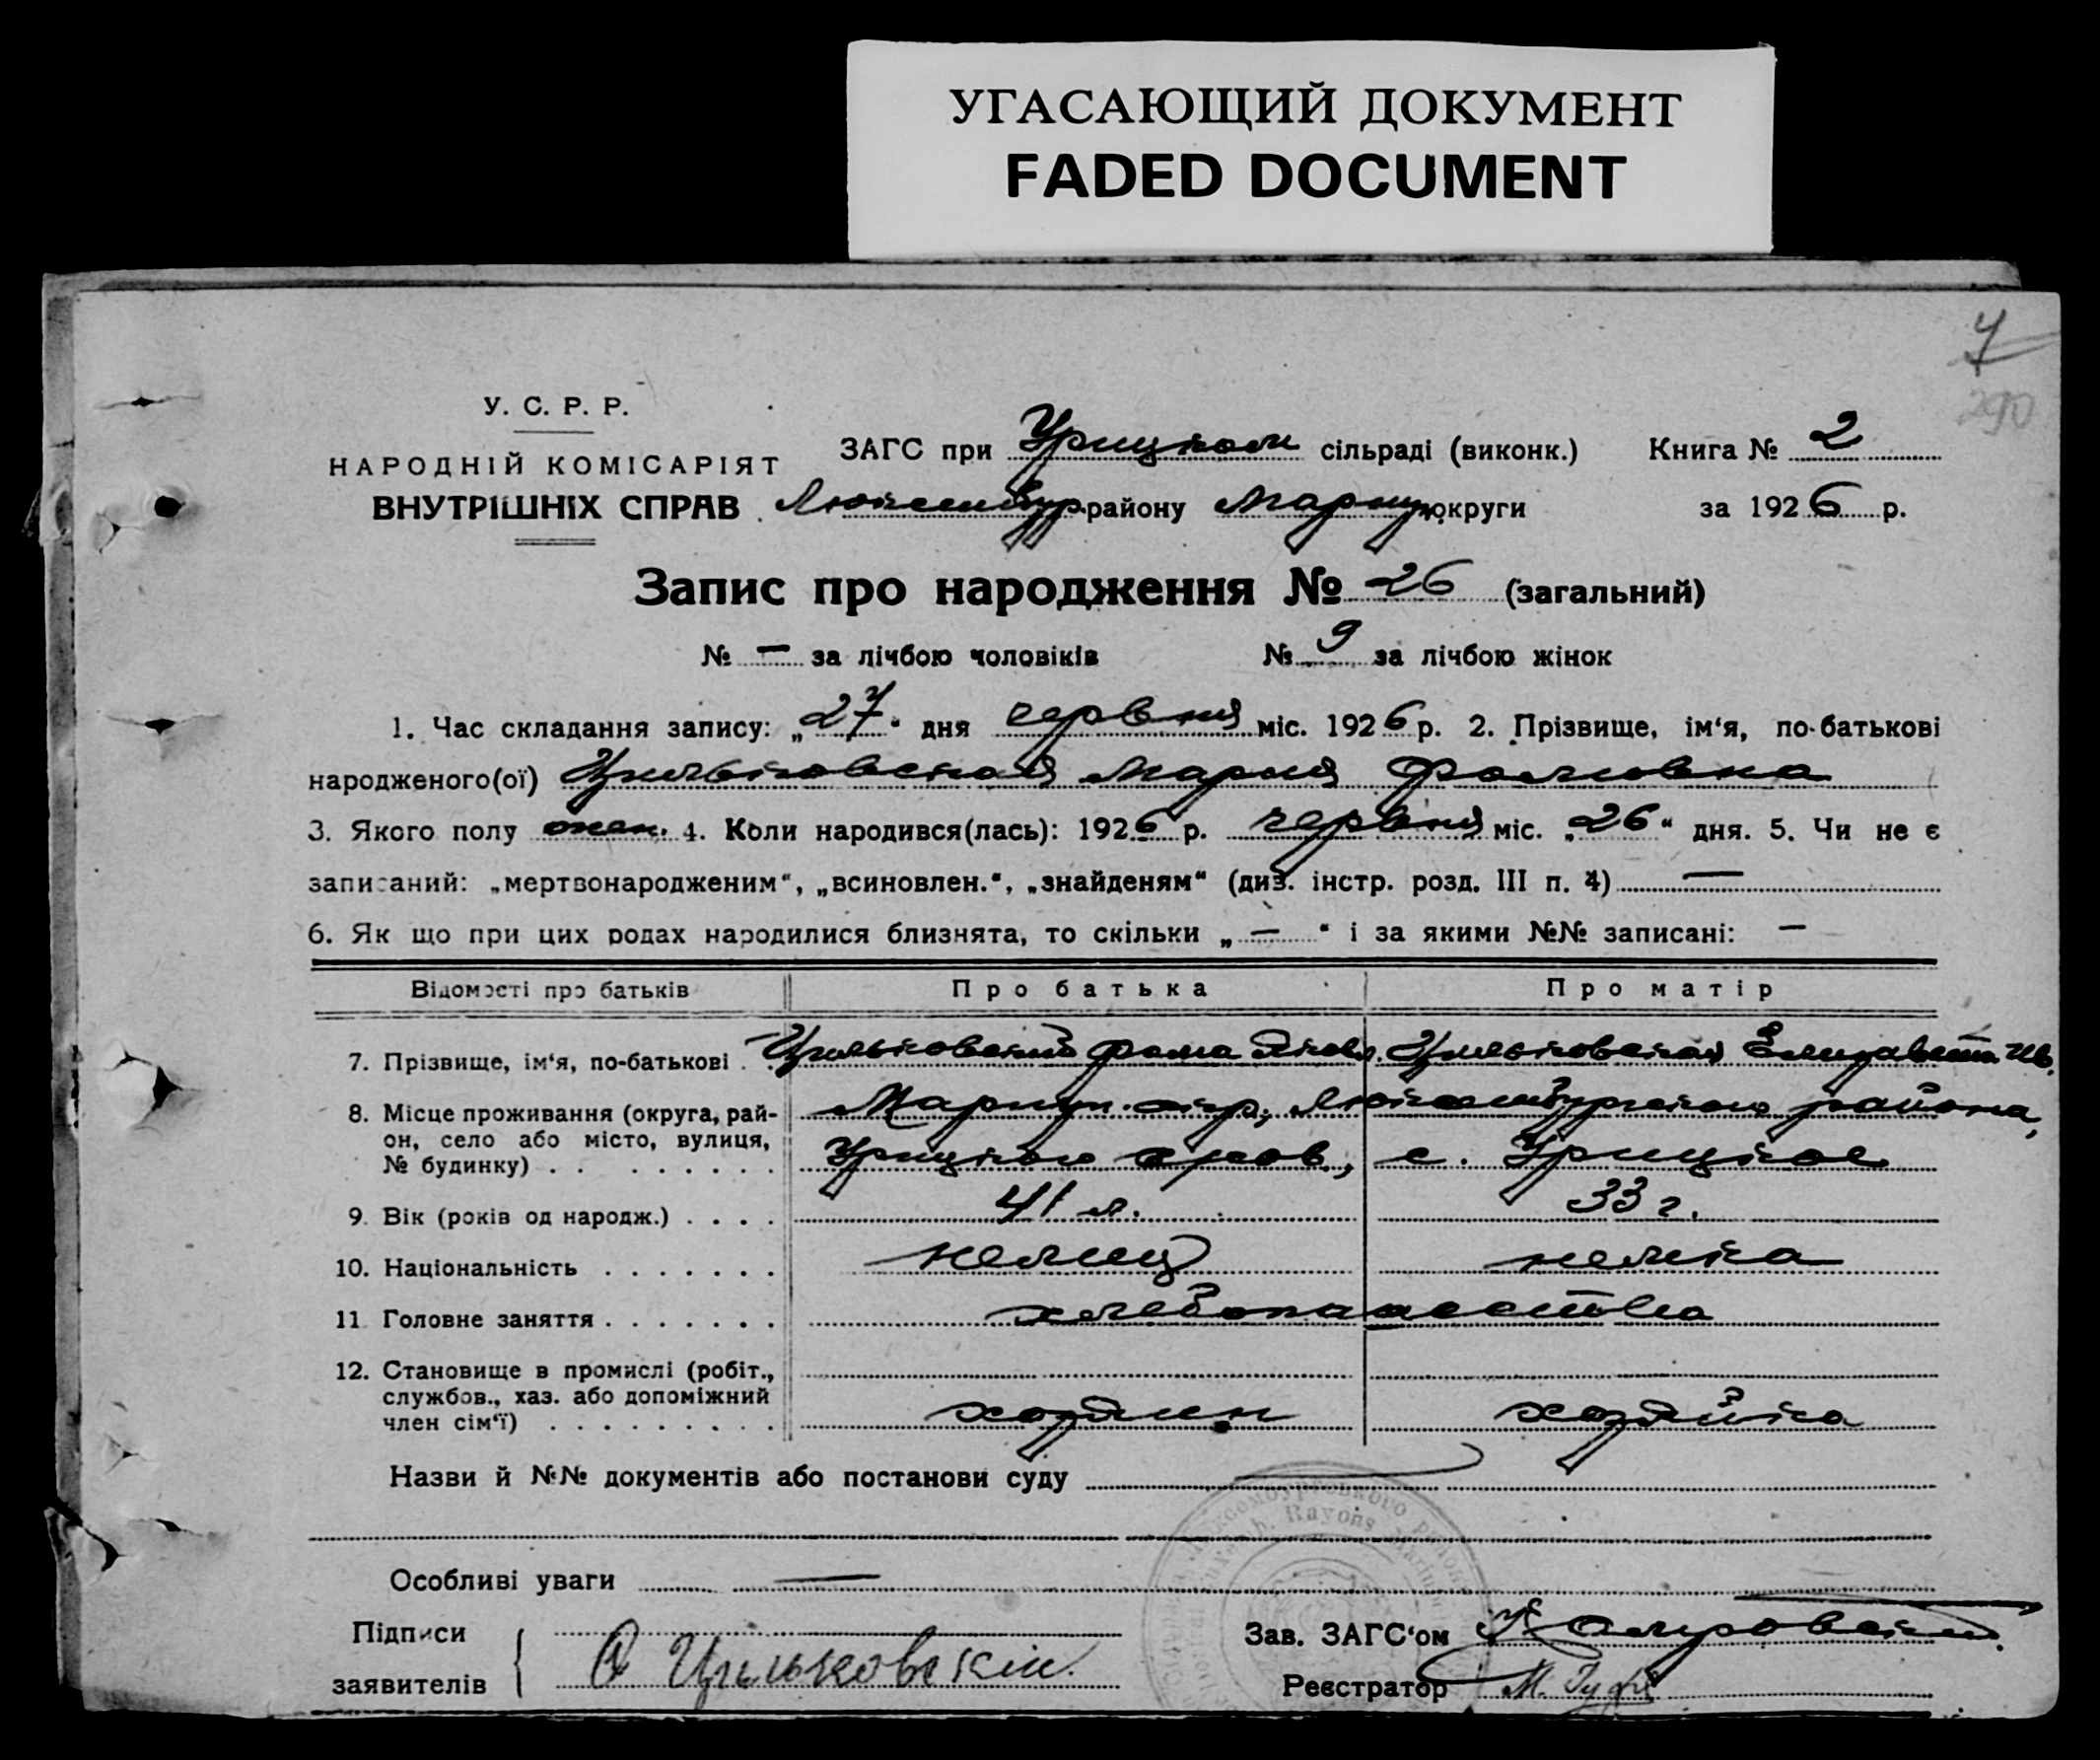 УГАСАЮЩИЙ ДОКУМЕНТ
FADED DOCUMENT
290
У. С. Р. Р.
НАРОДНІЙ КОМІСАРІЯТ
ВНУТРІШНІХ СПРАВ
ЗАГС при Урицком сільраді (виконк.) Книга № 2
Люксембур. району Мариуп. округи за 1926 р.
Запис про народження № 26 (загальний)
№ — за лічбою чоловіків № 9 за лічбою жінок
1. Час складання запису: „27“ дня червня міс. 1926 р. 2. Прізвище, ім‘я, по-батькові
народженого(ої) Цильковская Мария Фомовна
3. Якого полу жен. 4. Коли народився(лась): 1926 р. червня міс. „26“ дня. 5. Чи не є
записаний: „мертвонародженим“, „всиновлен.“, „знайденям“ (див. інстр. розд. III п. 4) —
6. Як що при цих родах народилися близнята, то скільки „—“ і за якими №№ записані: —
Відомості про батьків Про батька Про матір
7. Прізвище, ім‘я, по-батькові . . Цильковский Фома Яковл. Цильковская Елизавета Ив.
8. Місце проживання (округа, рай-
он, село або місто, вулиця,
№ будинку) . . . . . . . . .
Мариуп. окр., Люксембургского района,
Урицкого с. Урицкое
9. Вік (років од народж.) . . . . 41 л. 33 г.
10. Національність . . . . . . . немец немка
11. Головне заняття . . . . . . . хлебопашество
12. Становище в промислі (робіт.,
службов., хаз. або допоміжний
член сім‘ї) . . . . . . . . . хозяин хозяйка
Назви й №№ документів або постанови суду —
Особливі уваги —
Підписи
заявителів
Цильковскій.
Зав. ЗАГС‘ом
Реєстратор М.
Rayons